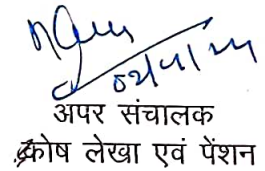 अपर संचालक
कोष लेखा एवं पेंशन